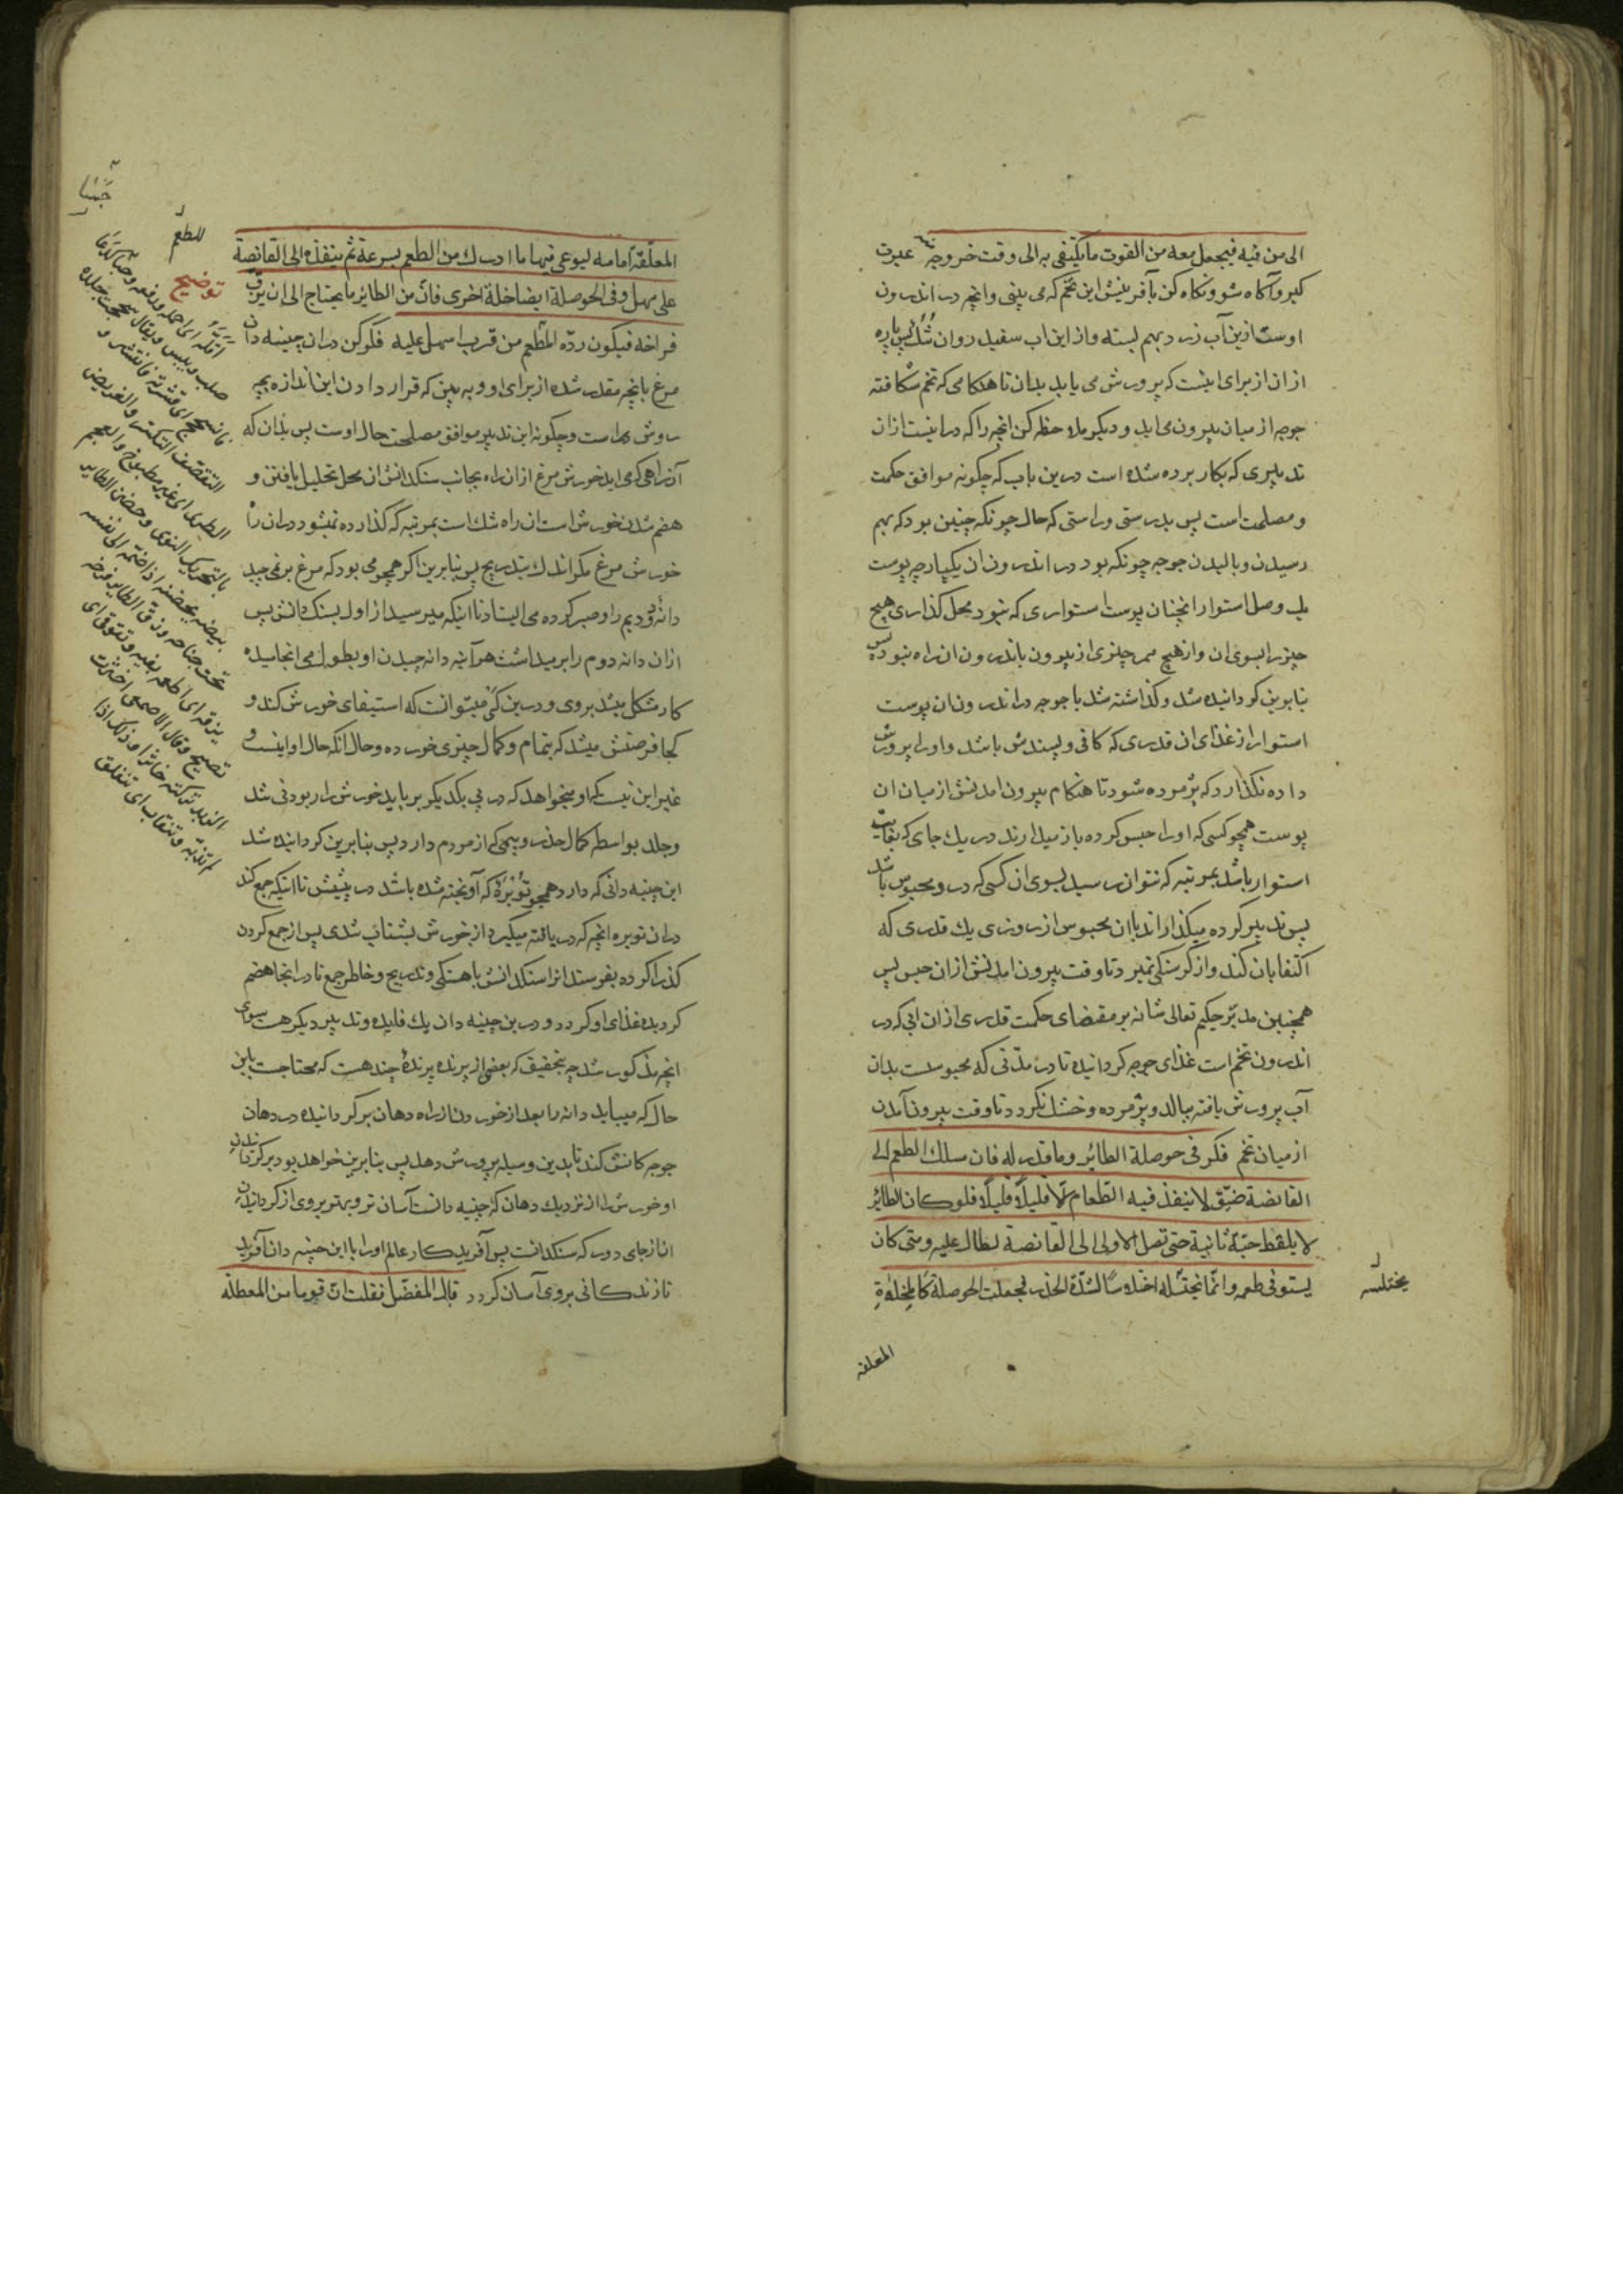 الی من فیه فیجعل معه من القوت ما یکتفی به الی وقت خروجه منه عبرت
کیر و آکاه شو و نکاه کن بآفرینش این تخم که می بینی و انچه در اندرون
اوست ازین آب زرد بهم بسته و ازاین اب سفید روان تُنُک پس پاره
ازان از برای اینست که پرورش می یابد بدان تا هنکامی که تخم شکافته
جوجه از میان بیرون می اید و دیکر ملاحظه کن انچه را که در اینست ازان
تدبیری که بکار برده شده است درین باب که چکونه موافق حکمت
و مصلحت است پس بدرستی و راستی که حال چونکه چنین بود که بهم
رسیدن و بالیدن جوجه چونکه بود در اندرون ان یکپارچه پوست
بی وصل استوار انچنان پوست استواری که نبود محل کذاری هیچ
چیز را بسوی ان و از هیچ ممر چیزی از بیرون باندرون ان راه نبود پس
بنابرین کردانیده شد و کذاشته شد با جوجه در اندرون ان پوست
استوار از غذای ان قدری که کافی و پسندش باشد و او را پرورش
داده نکذارد که پژمرده شود تا هنکام بیرون امدنش از میان ان
پوست همچو کسی که او را حبس کرده باز میدارند در یك جای که بغایت
استوار باشد بمرتبه که نتوان رسید بسوی ان کسی که درو محبوس باشد
پس تدبیر کرده میکذارند با ان محبوس از روزی یك قدری که
اکتفا بان کند و از کرسنکی نمیرد تا وقت بیرون امدنش ازان حبس پس
همچنین مدبّر حکیم تعالی شانه بر مقتضای حکمت قدری ازان ابی که در
اندرون تخم است غذای جوجه کردانیده تا در مدّتی که محبوست بدان
آب پرورش یافته ببالد و پژمرده و خشك نکردد تا وقت بیرون آمدن
از میان تخم فکر فی حوصلة الطائر و ما قدر له فان مسلك الطعم الی
القانصة ضیّق لا ینفذ فیه الطعام الّا قلیلًا قلیلًا فلو کان الطائر
لا یلقط حبّة ثانیة حتی تصل الاولی الی القانصة لطال علیه و متی کان
یستوفی طعمه و انّما یختله اختلاسًا لشدّة الحذر فجعلت الحوصلة کالمخلاةِ
یختلسه
المعلقه
المعلّقة امامه لیوعی فیها ما ادرك من الطعم بسرعة ثم ینفذه الی القانصة
علی مهل و فی الحوصلة ایضا خلة اخری فانّ من الطائر ما یحتاج الی ان یزقّ
فراخه فیکون ردّه الطّعم من قرب اسهل علیه فکر کن در ان چینه دان
مرغ بانچه مقدر شده از برای او و به بین که قرار دادن این اندازه بچه
روش در است و چکونه این تدبیر موافق مصلحت حال اوست پس بدان که
آن راهی که می اید خورش مرغ ازان راه بجانب سنکدانش ان محل تحلیل یافتن و
هضم شدن خورش است ان راه تنك است بمرتبه که کذارده نمیشود دران راه
خورش مرغ مکر اندك بتدریج پس بنابرین اکر همچو می بود که مرغ بر نمی چید
دانه دویم را و صبر کرده می ایستاد تا اینکه میرسید از اول بسنکدانش پس
ازان دانه دوم را بر میداشت هر آینه دانه چیدن او بطول می انجامیده
کار مشکل میشد بر وی و درین کی میتوانست که استیفای خورش کند و
کجا فرصتش میشد که بتمام و کمال چیزی خورده و حال انکه حال او اینست و
غیر این نیست که او میخواهد که در پی یکدیکر برباید خورش را ربودنی تند
و جلد بواسطه کمال حذر و بیمی که از مردم دارد پس بنابرین کردانیده شد
این چینه دانی که دارد همچو تُوبَرَهٔ که آویخته شده باشد در پیشش تا اینکه جمع کند
دران توبره انچه که دریافته میکیرد از خورش بشتاب تندی پس از جمع کردن
کذرا کرده بفرستد انرا سنکدانش باهستکی و تدریج و خاطر جمع تا در انجا هضم
کردیده غذای او کردد و درین چینه دان یك فایده و تدبیر دیکر هست سوی
انچه مذکور شد چه بتحقیق که بعضی از پرنده پرندهٔ چند هست که محتاجست باین
حال که میباید دانه را بعد از خوردن از راه دهان برکردانیده در دهان
جوجه کانش کند تا بدین وسیله پرورش دهد پس بنابرین خواهد بود برکردانیدن
او خورش را از نزدیك دهان که چینه دانست آسان تر و بهتر بر وی از کردانیدن
ان از جای دور که سنکدانست پس آفریدکار عالم او را با این چینه دان آفرید
تا زندکانی بر وی آسان کردد قال المفضّل فقلت انّ قوما من المعطلة
للطعم
توضیح